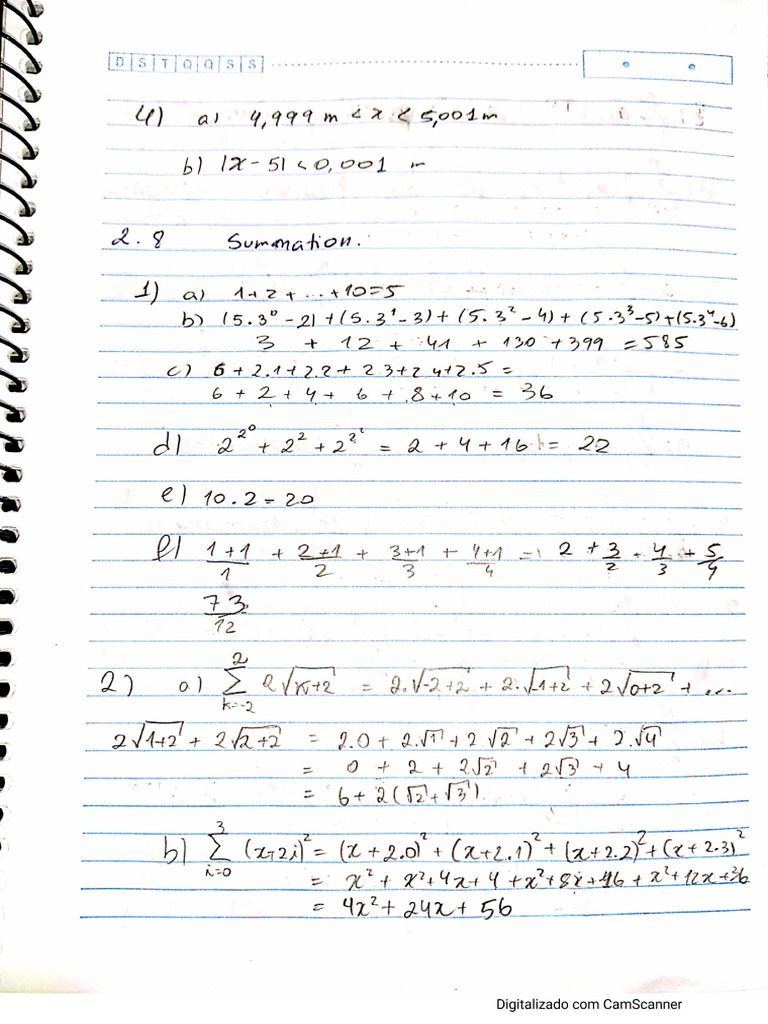 D S T Q Q S S
4) a) 4,999 m < x < 5,001 m
b) |x - 5| < 0,001 m
2.8 Summation.
1) a) 1+2+...+10=5
b) (5.3⁰-2)+(5.3¹-3)+(5.3²-4)+(5.3³-5)+(5.3⁴-6)
3 + 12 + 41 + 130 + 399 = 585
c) 6+2.1+2.2+2.3+2.4+2.5=
6+2+4+6+8+10 = 36
d) 2^2^0 + 2^2 + 2^2^2 = 2+4+16 = 22
e) 10.2=20
f) (1+1)/1 + (2+1)/2 + (3+1)/3 + (4+1)/4 = 2 + 3/2 + 4/3 + 5/4
73/12
2) a) ∑_{k=-2}^{2} 2√(k+2) = 2.√(-2+2) + 2.√(-1+2) + 2√(0+2) + ...
2√(1+2) + 2√(2+2) = 2.0+2.√1+2.√2+2√3+2.√4
= 0+2+2√2+2√3+4
= 6+2(√2+√3).
b) ∑_{i=0}^{3} (x+2i)² = (x+2.0)²+(x+2.1)²+(x+2.2)²+(x+2.3)²
= x²+x²+4x+4+x²+8x+16+x²+12x+36
= 4x²+24x+56
Digitalizado com CamScanner